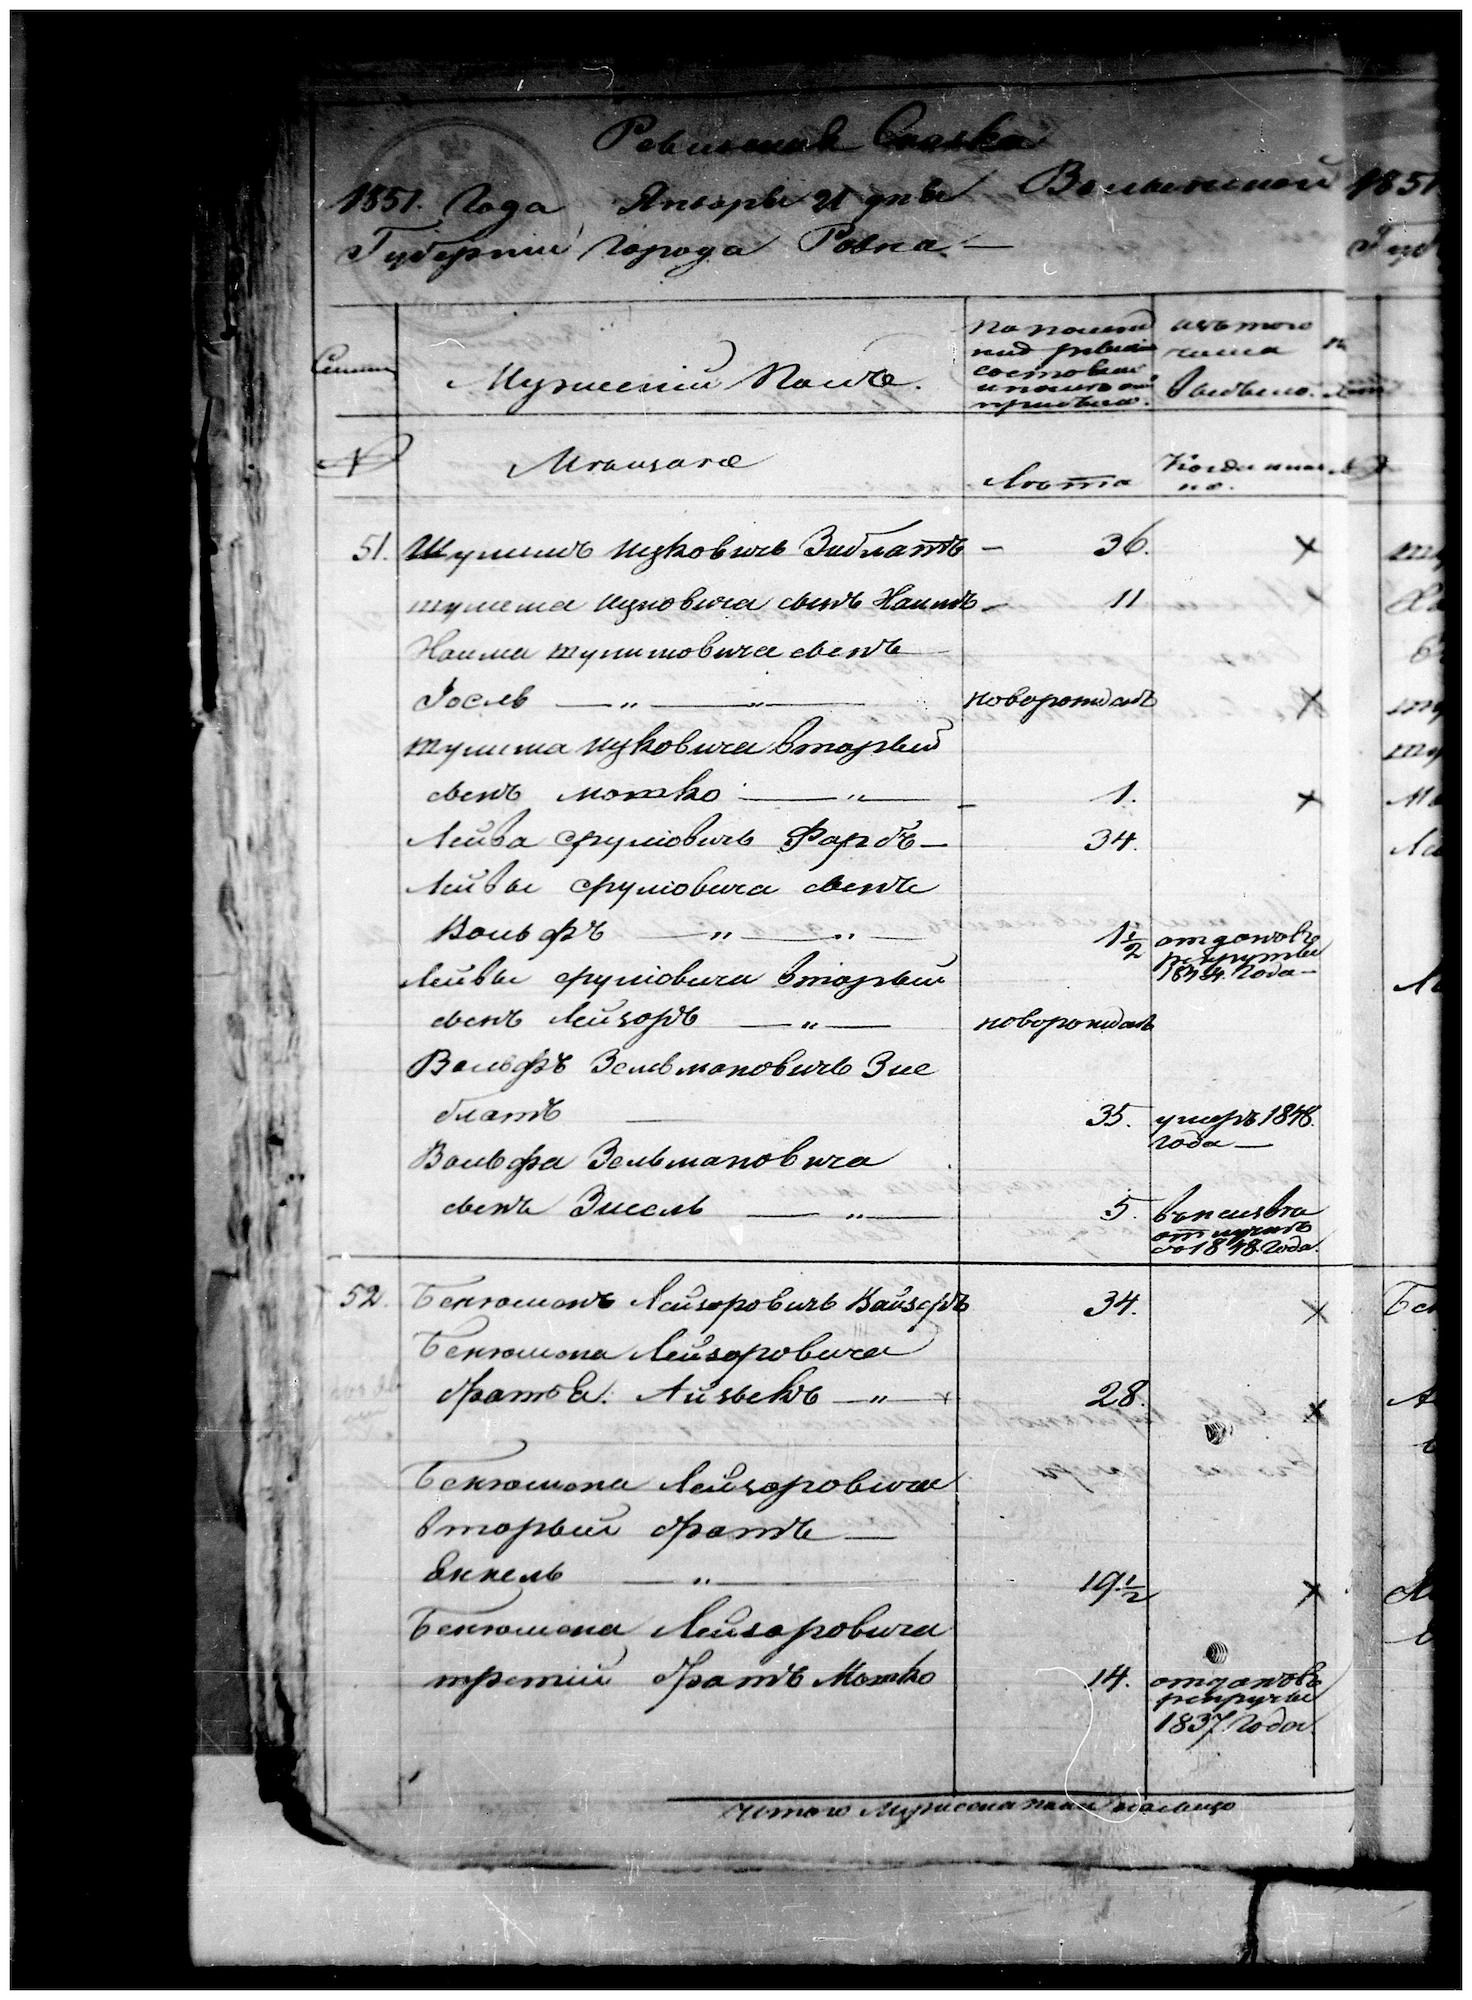 Ревизская Сказка
1851. Года Января 21 дня Волынской
Губернии города Ровна. —
Мужеский Полъ.
По последней ревизіи состояло и после оной прибыло.
изъ того числа выбыло.
№ Мещане
Лета
Когда именно.
51. Шулимъ Ицковичъ Зисблатъ — 36. ×
Шулима Ицковича сынъ Хаимъ — 11 ×
Хаима Шулимовича сынъ
Іосль — „ — „ — новорожданъ ×
Шулима Ицковича вторый
сынъ Мошко — „ — 1. ×
Лейба Срулiовичъ Фарбъ — 34.
Лейбы Срулiовича сынъ
Вольфъ — „ — „ — 1½ отданъ въ рекруты 1844. Года —
Лейбы Срулiовича вторый
сынъ Лейзоръ — „ — новорожданъ
Вольфъ Зельмановичъ Зис
блатъ — 35. умеръ 1848. Года —
Вольфа Зельмановича
сынъ Зисель — „ — 5. отлучкѣ со 1848 Года.
52. Бенюминъ Лейзоровичъ Вайзеръ 34. ×
Бенюмина Лейзоровича
братъ Айзыкъ — „ — 28. ×
Бенюмина Лейзоровича
вторый братъ —
Янкель — „ — 19½ ×
Бенюмина Лейзоровича
третий братъ Мошко 14. отданъ въ рекруты 1837 Года.
Итого Мужеска пола налицо